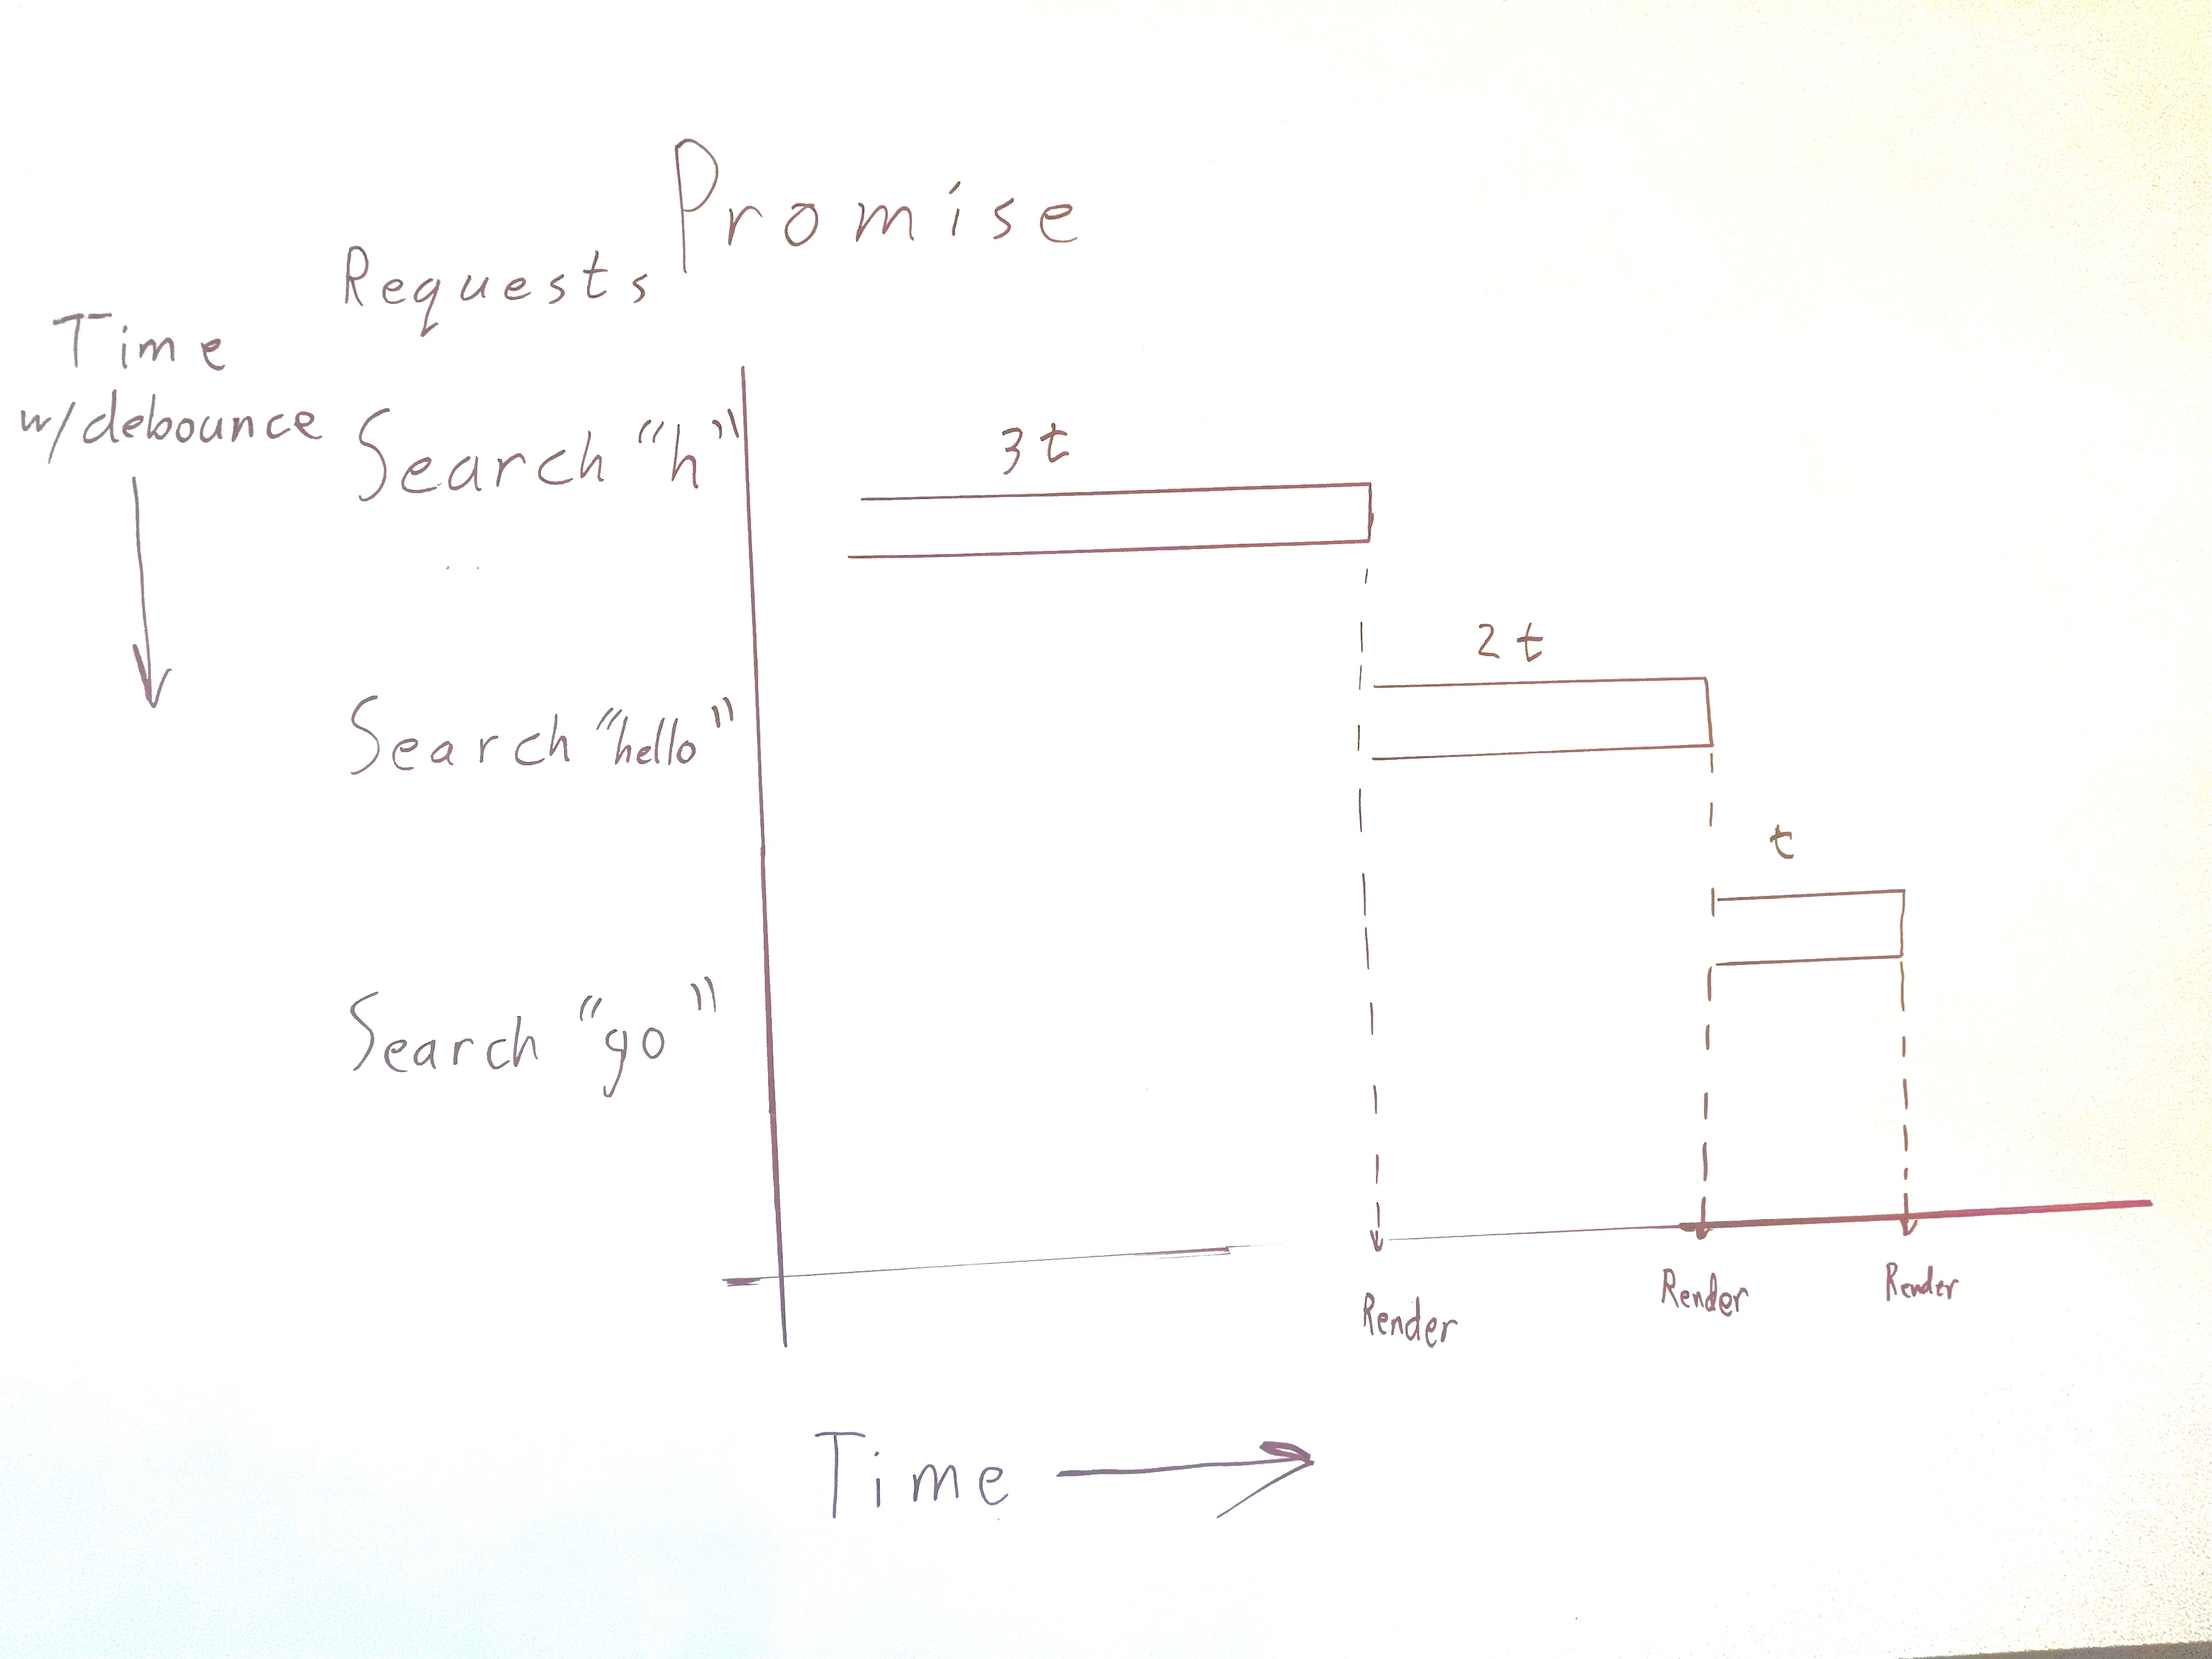 Promise
Requests
Time
w/debounce
Search "h"
3t
2t
Search "hello"
t
Search "go"
Render
Render
Render
Time